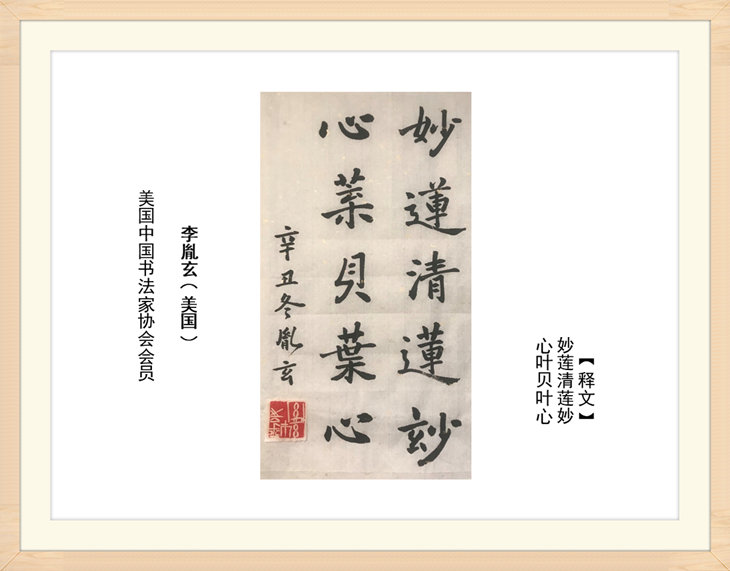 【释文】
妙莲清莲妙
心叶贝叶心
妙蓮清蓮玅
心葉貝葉心
辛丑冬胤玄
李胤玄（美国）
美国中国书法家协会会员